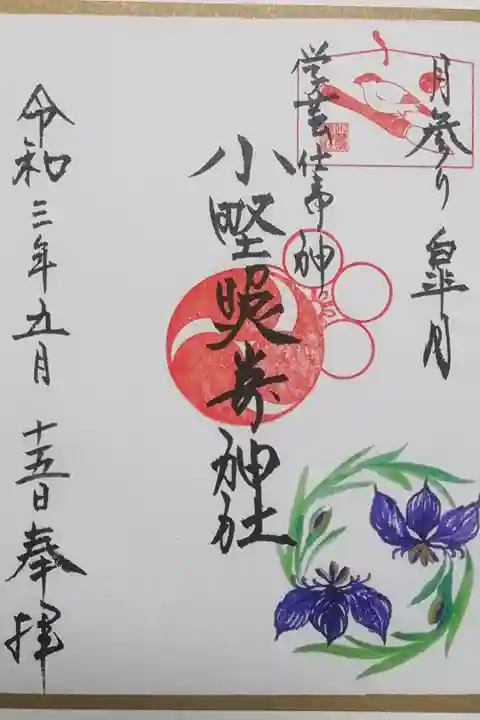 月参り 皐月
学芸仕事神
小野照崎神社
令和三年五月 十五日 奉拝